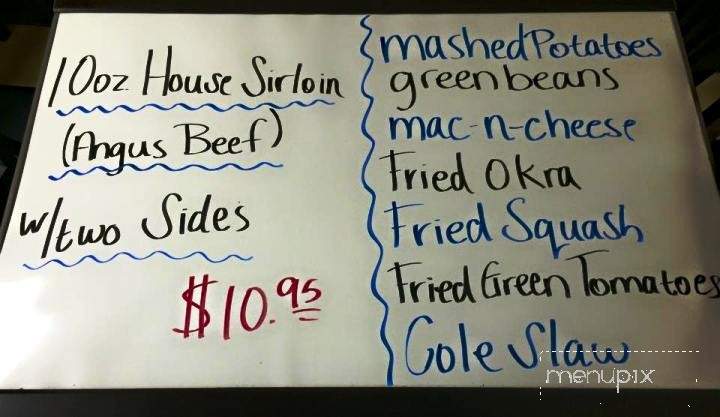 10oz House Sirloin
(Angus Beef)
w/two Sides
$10.95
mashed Potatoes
green beans
mac-n-cheese
Fried Okra
Fried Squash
Fried Green Tomatoes
Cole Slaw
menupix